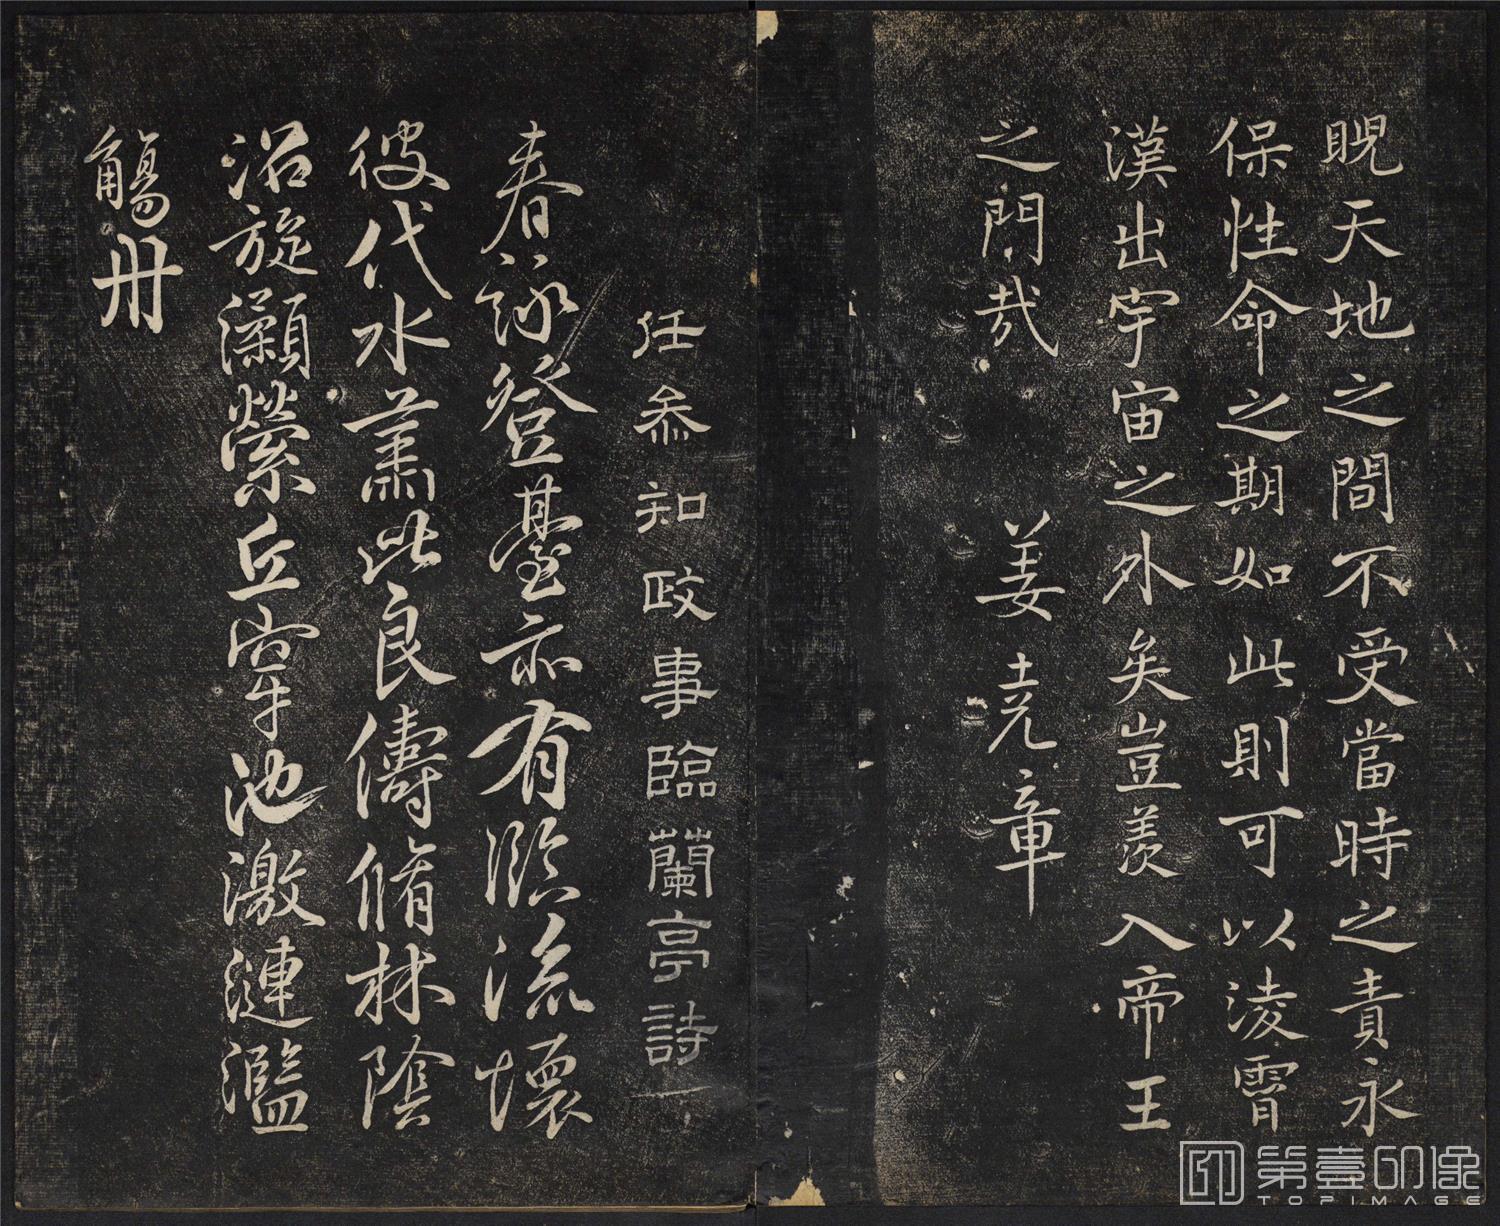 睨天地之間不受當時之責永
保性命之期如此則可以淩霄
漢出宇宙之外矣豈羨入帝王
之門哉　姜堯章
任叅知政事臨蘭亭詩一
春詠登臺亦有臨流懷
彼代水肅此良儔脩林陰
沼旋瀨縈丘穹池激漣濫
觴舟
第壹印像
TOPIMAGE